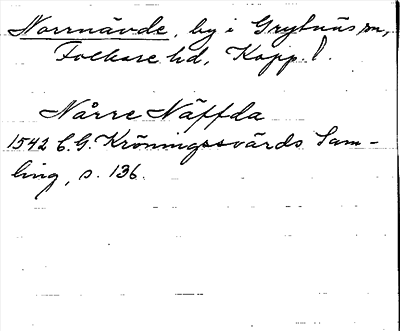 Norrnävde, by i Grytnäs sn,
Folkare hd, Kopp. l.
Nårre Näffda
1542 C.G. Kröningssvärds Sam-
ling, s. 136.